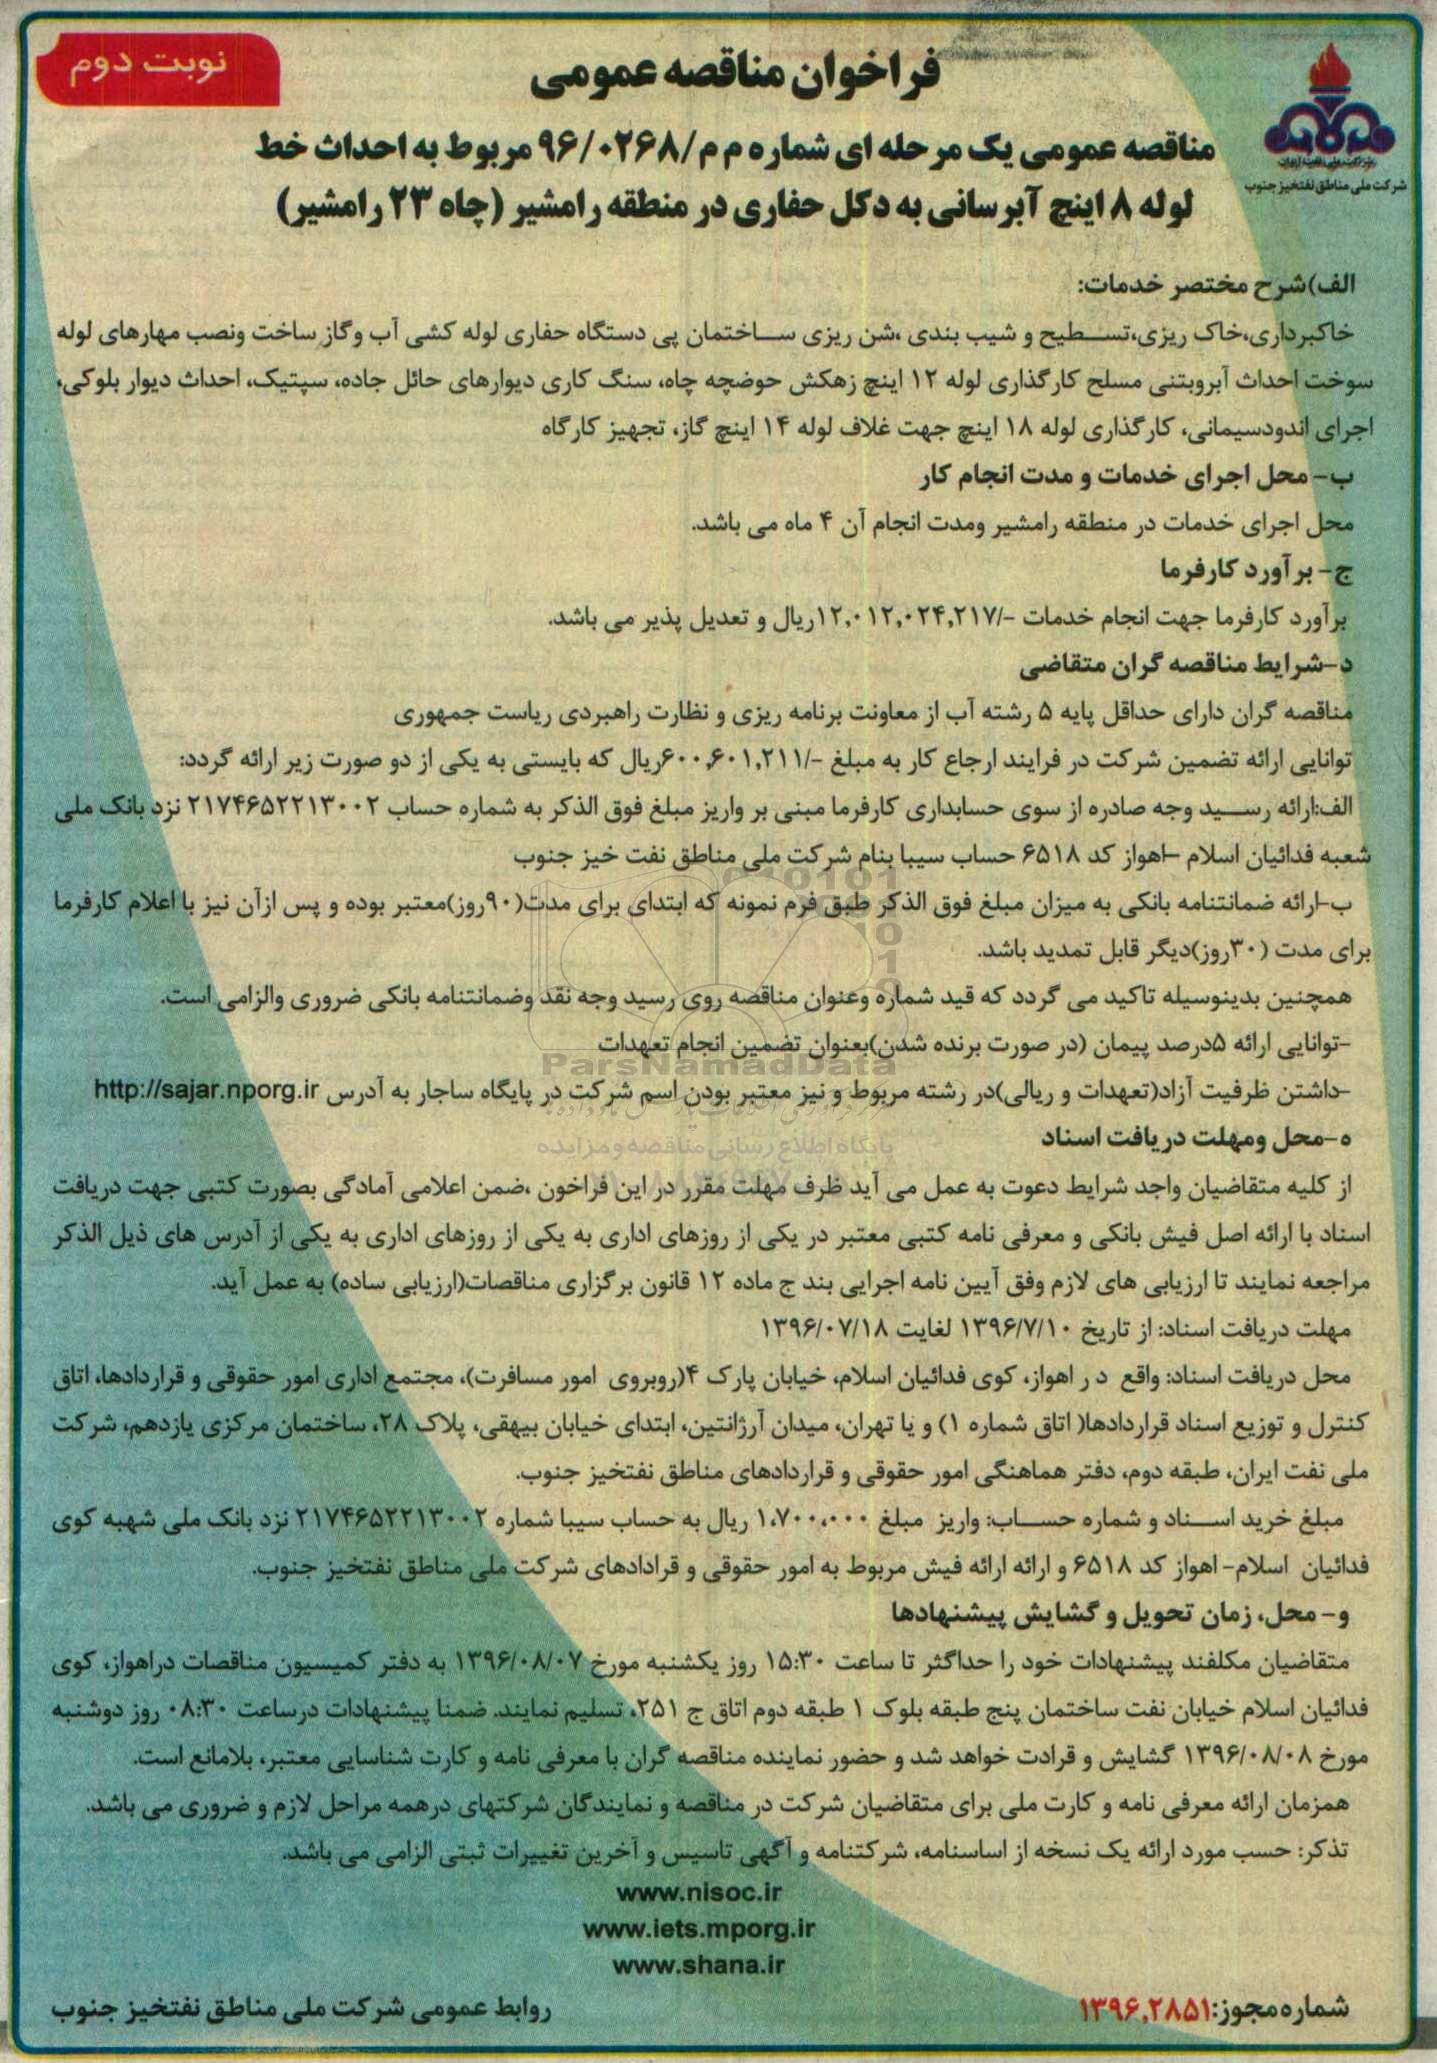 نوبت دوم
فراخوان مناقصه عمومی
مناقصه عمومی یک مرحله ای شماره م م/۹۶/۰۲۶۸ مربوط به احداث خط
لوله ۸ اینچ آبرسانی به دکل حفاری در منطقه رامشیر (چاه ۲۳ رامشیر)
شرکت ملی مناطق نفتخیز جنوب
الف)شرح مختصر خدمات:
خاکبرداری،خاک ریزی،تسطیح و شیب بندی ،شن ریزی ساختمان پی دستگاه حفاری لوله کشی آب وگاز ساخت ونصب مهارهای لوله
سوخت احداث آبروبتنی مسلح کارگذاری لوله ۱۲ اینچ زهکش حوضچه چاه، سنگ کاری دیوارهای حائل جاده، سپتیک، احداث دیوار بلوکی،
اجرای اندودسیمانی، کارگذاری لوله ۱۸ اینچ جهت غلاف لوله ۱۴ اینچ گاز، تجهیز کارگاه
ب- محل اجرای خدمات و مدت انجام کار
محل اجرای خدمات در منطقه رامشیر ومدت انجام آن ۴ ماه می باشد.
ج- برآورد کارفرما
برآورد کارفرما جهت انجام خدمات -/۱۲,۰۱۲,۰۲۴,۲۱۷ریال و تعدیل پذیر می باشد.
د-شرایط مناقصه گران متقاضی
مناقصه گران دارای حداقل پایه ۵ رشته آب از معاونت برنامه ریزی و نظارت راهبردی ریاست جمهوری
توانایی ارائه تضمین شرکت در فرایند ارجاع کار به مبلغ -/۶۰۰,۶۰۱,۲۱۱ریال که بایستی به یکی از دو صورت زیر ارائه گردد:
الف:ارائه رسید وجه صادره از سوی حسابداری کارفرما مبنی بر واریز مبلغ فوق الذکر به شماره حساب ۲۱۷۴۶۵۲۲۱۳۰۰۲ نزد بانک ملی
شعبه فدائیان اسلام -اهواز کد ۶۵۱۸ حساب سیبا بنام شرکت ملی مناطق نفت خیز جنوب
ب-ارائه ضمانتنامه بانکی به میزان مبلغ فوق الذکر طبق فرم نمونه که ابتدای برای مدت(۹۰روز)معتبر بوده و پس ازآن نیز با اعلام کارفرما
برای مدت (۳۰روز)دیگر قابل تمدید باشد.
همچنین بدینوسیله تاکید می گردد که قید شماره وعنوان مناقصه روی رسید وجه نقد وضمانتنامه بانکی ضروری والزامی است.
-توانایی ارائه ۵درصد پیمان (در صورت برنده شدن)بعنوان تضمین انجام تعهدات
ParsNamadData
-داشتن ظرفیت آزاد(تعهدات و ریالی)در رشته مربوط و نیز معتبر بودن اسم شرکت در پایگاه ساجار به آدرس http://sajar.nporg.ir
ه-محل ومهلت دریافت اسناد
پایگاه اطلاع رسانی مناقصه و مزایده
از کلیه متقاضیان واجد شرایط دعوت به عمل می آید ظرف مهلت مقرر در این فراخون ،ضمن اعلامی آمادگی بصورت کتبی جهت دریافت
اسناد با ارائه اصل فیش بانکی و معرفی نامه کتبی معتبر در یکی از روزهای اداری به یکی از روزهای اداری به یکی از آدرس های ذیل الذکر
مراجعه نمایند تا ارزیابی های لازم وفق آیین نامه اجرایی بند ج ماده ۱۲ قانون برگزاری مناقصات(ارزیابی ساده) به عمل آید.
مهلت دریافت اسناد: از تاریخ ۱۳۹۶/۷/۱۰ لغایت ۱۳۹۶/۰۷/۱۸
محل دریافت اسناد: واقع د ر اهواز، کوی فدائیان اسلام، خیابان پارک ۴(روبروی امور مسافرت)، مجتمع اداری امور حقوقی و قراردادها، اتاق
کنترل و توزیع اسناد قراردادها( اتاق شماره ۱) و یا تهران، میدان آرژانتین، ابتدای خیابان بیهقی، پلاک ۲۸، ساختمان مرکزی یازدهم، شرکت
ملی نفت ایران، طبقه دوم، دفتر هماهنگی امور حقوقی و قراردادهای مناطق نفتخیز جنوب.
مبلغ خرید اسناد و شماره حساب: واریز مبلغ ۱،۷۰۰،۰۰۰ ریال به حساب سیبا شماره ۲۱۷۴۶۵۲۲۱۳۰۰۲ نزد بانک ملی شهبه کوی
فدائیان اسلام- اهواز کد ۶۵۱۸ و ارائه ارائه فیش مربوط به امور حقوقی و قرادادهای شرکت ملی مناطق نفتخیز جنوب.
و- محل، زمان تحویل و گشایش پیشنهادها
متقاضیان مکلفند پیشنهادات خود را حداگثر تا ساعت ۱۵:۳۰ روز یکشنبه مورخ ۱۳۹۶/۰۸/۰۷ به دفتر کمیسیون مناقصات دراهواز، کوی
فدائیان اسلام خیابان نفت ساختمان پنج طبقه بلوک ۱ طبقه دوم اتاق ج ۲۵۱، تسلیم نمایند. ضمنا پیشنهادات درساعت ۰۸:۳۰ روز دوشنبه
مورخ ۱۳۹۶/۰۸/۰۸ گشایش و قرادت خواهد شد و حضور نماینده مناقصه گران با معرفی نامه و کارت شناسایی معتبر، بلامانع است.
همزمان ارائه معرفی نامه و کارت ملی برای متقاضیان شرکت در مناقصه و نمایندگان شرکتهای درهمه مراحل لازم و ضروری می باشد.
تذکر: حسب مورد ارائه یک نسخه از اساسنامه، شرکتنامه و آگهی تاسیس و آخرین تغییرات ثبتی الزامی می باشد.
www.nisoc.ir
www.iets.mporg.ir
www.shana.ir
شماره مجوز:۱۳۹۶,۲۸۵۱
روابط عمومی شرکت ملی مناطق نفتخیز جنوب